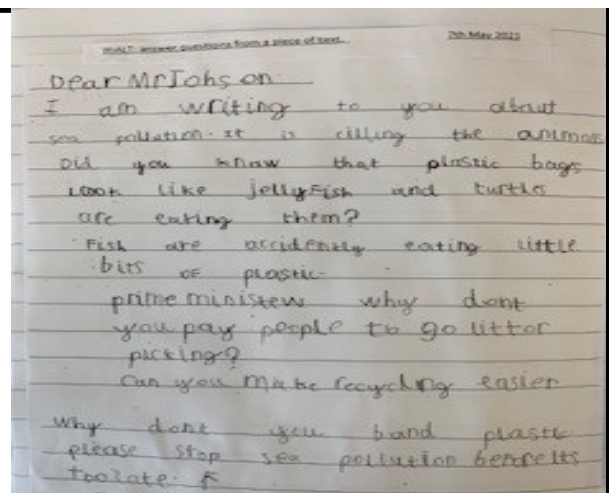 WALT: answer questions from a piece of text.
7th May 2021
Dear Mr Johson
I am writing to you about
sea pollation. It is cilling the animals
Did you know that plastic bags
Look like jellyFish and turtles
are eating them?
Fish are accidently eating little
bits of plastic.
prime ministew why dont
you pay people to go littor
picking?
Can you make recycling easier
Why dont you band plastic
please stop sea pollution before Its
toolate.